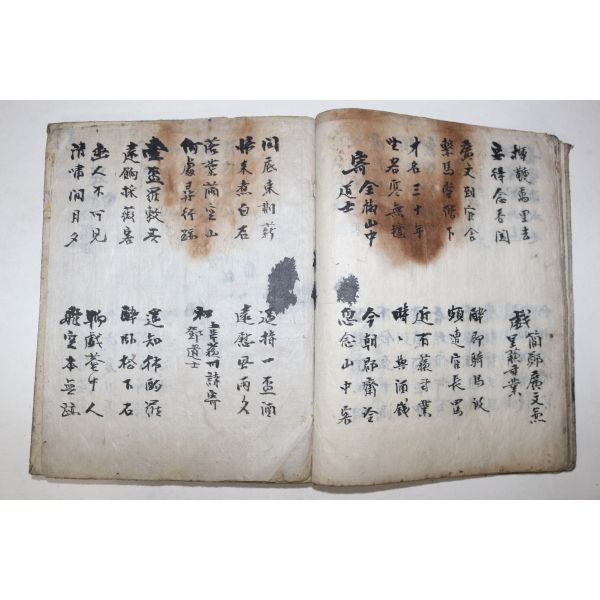 揮鞭萬里去
安得念香閨
戲簡鄭廣文兼
呈蘇司業
廣文到官舍
繫馬堂階下
醉即騎馬歸
頗遭官長罵
才名三十年
坐客寒無氈
近有蘇司業
時時與酒錢
寄全椒山中
道士
今朝郡齋冷
忽念山中客
澗底束荊薪
歸來煮白石
遙持一盃酒
遠慰風雨夕
落葉滿空山
何處尋行跡
和韋蘇州詩寄
鄧道士
壹盃羅敷春
遠餉採薇客
遙知獨酌罷
醉臥松下石
幽人不可見
清嘯聞月夕
聊戲菴中人
飛空本無跡